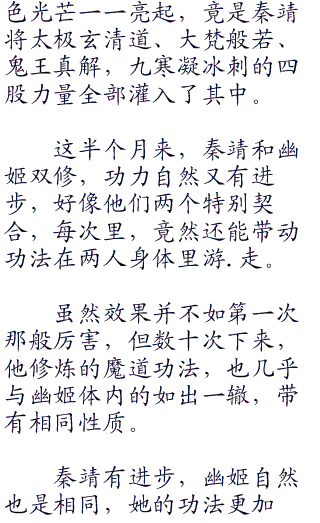 色光芒一一亮起，竟是秦靖
将太极玄清道、大梵般若、
鬼王真解，九寒凝冰刺的四
股力量全部灌入了其中。
这半个月来，秦靖和幽
姬双修，功力自然又有进
步，好像他们两个特别契
合，每次里，竟然还能带动
功法在两人身体里游.走。
虽然效果并不如第一次
那般厉害，但数十次下来，
他修炼的魔道功法，也几乎
与幽姬体内的如出一辙，带
有相同性质。
秦靖有进步，幽姬自然
也是相同，她的功法更加